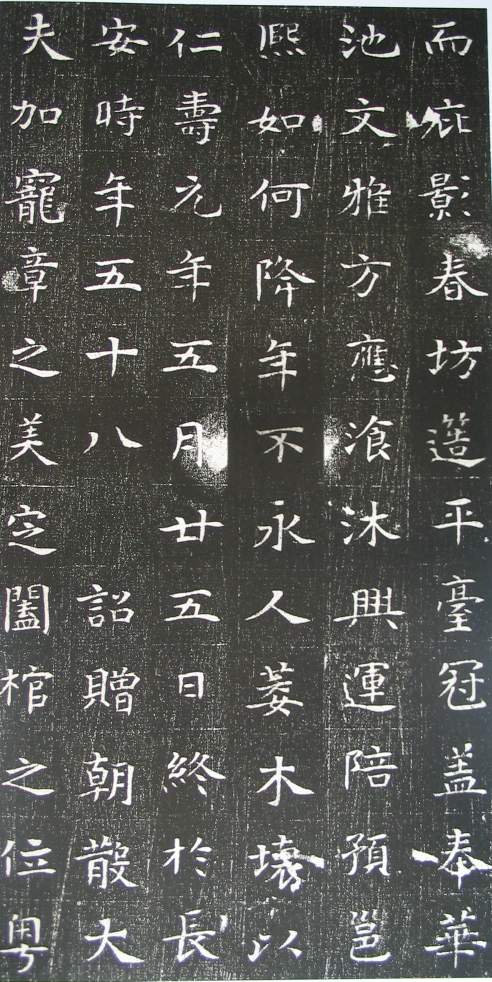 而庇影春坊造平臺冠盖奉華
池文雅方應湌沐興運陪預邕
熙如何降年不永人萎木壞以
仁壽元年五月廿五日終於長
安時年五十八 詔贈朝散大
夫加寵章之美定闔棺之位粤